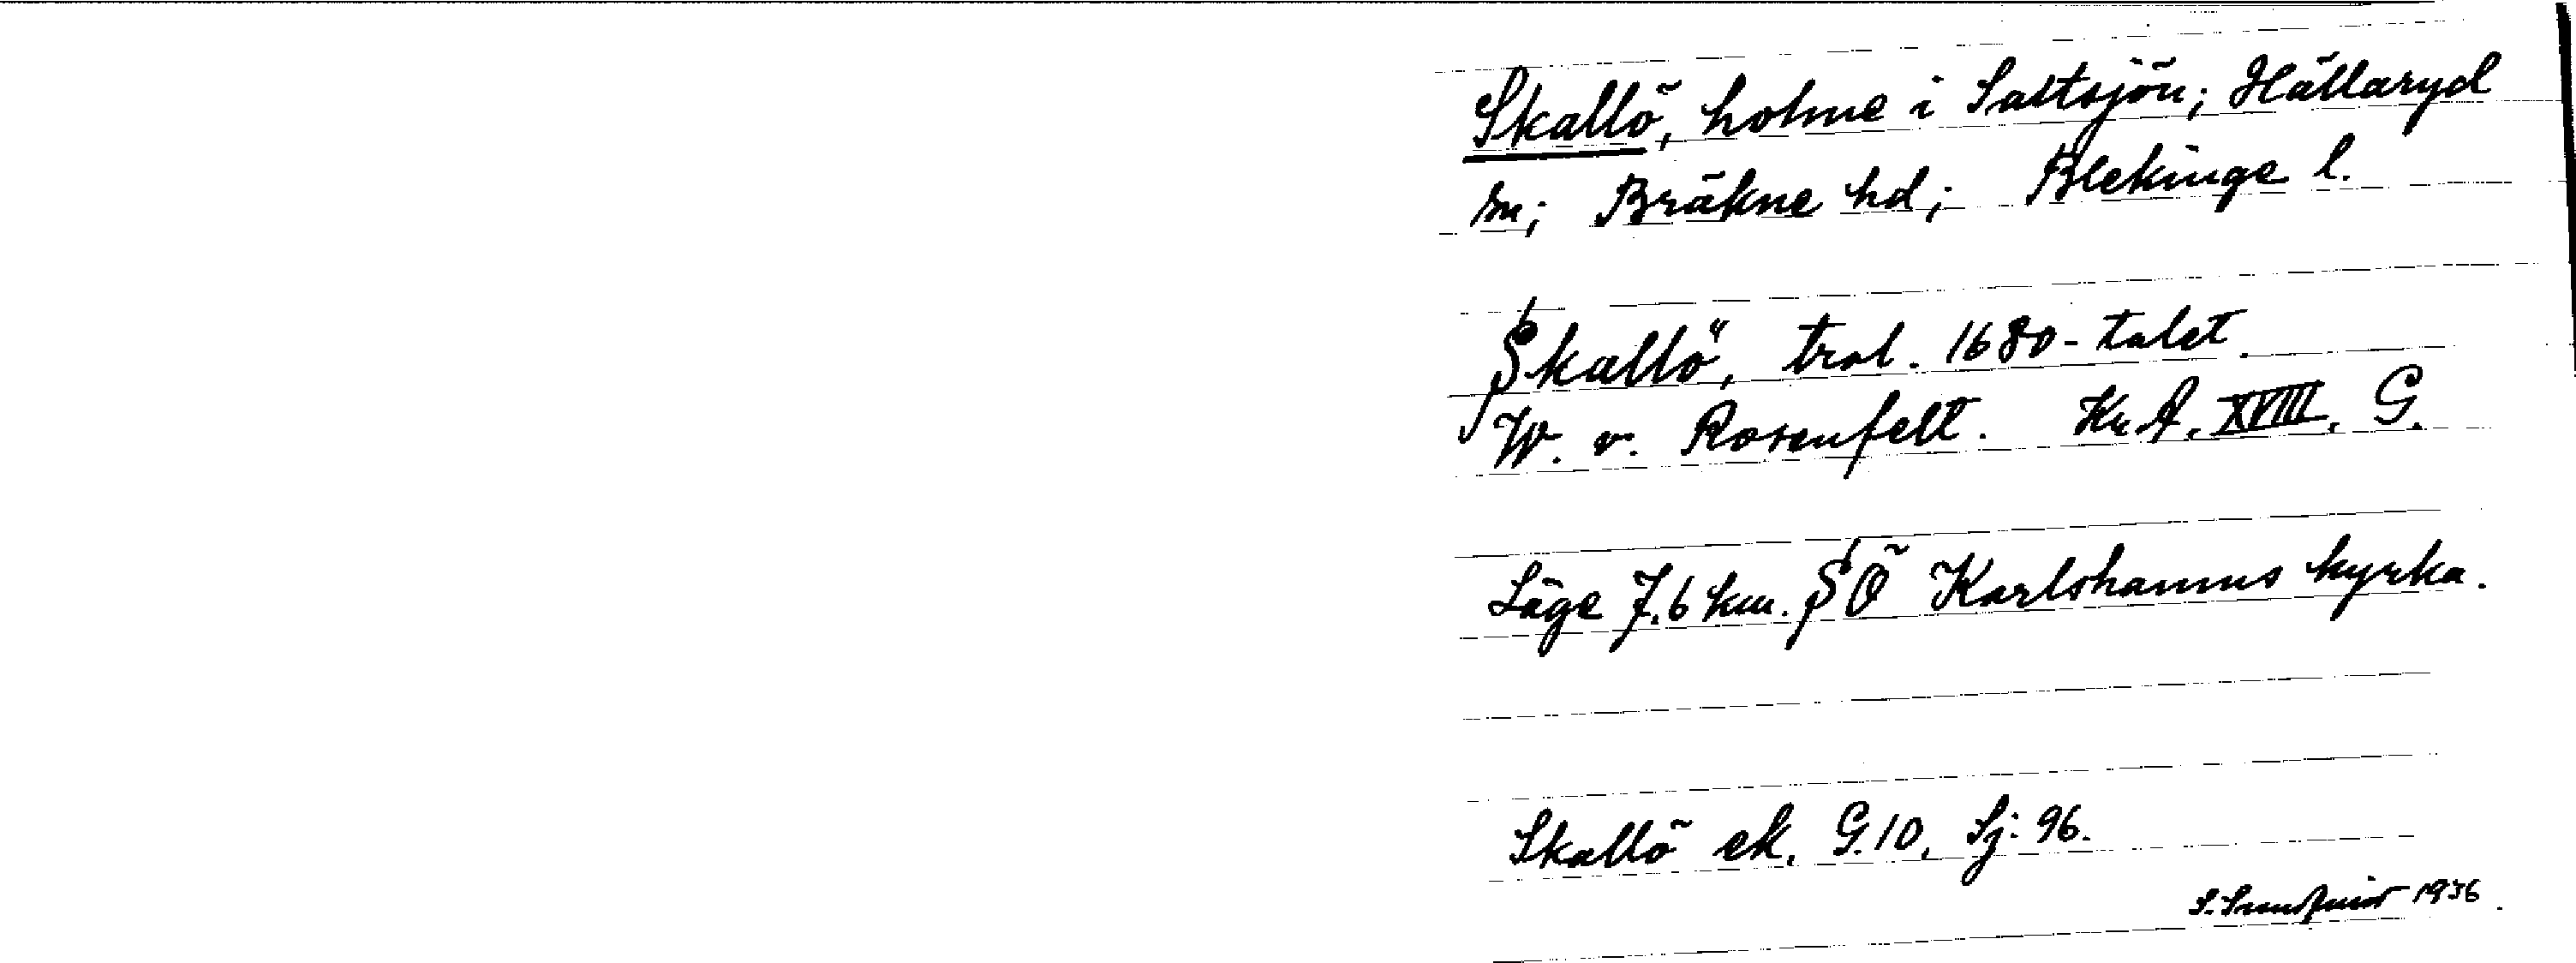 Skallö, holme i Saltsjön; Hällaryd
sn; Bräkne hd; Blekinge l.
Skallö, trol. 1680-talet.
W. v. Rosenfelt. Kr A. XVIII. G.
Läge 7.6 km. SÖ Karlshamns kyrka.
Skallö ek. G.10. Sj: 96.
S. 1936.